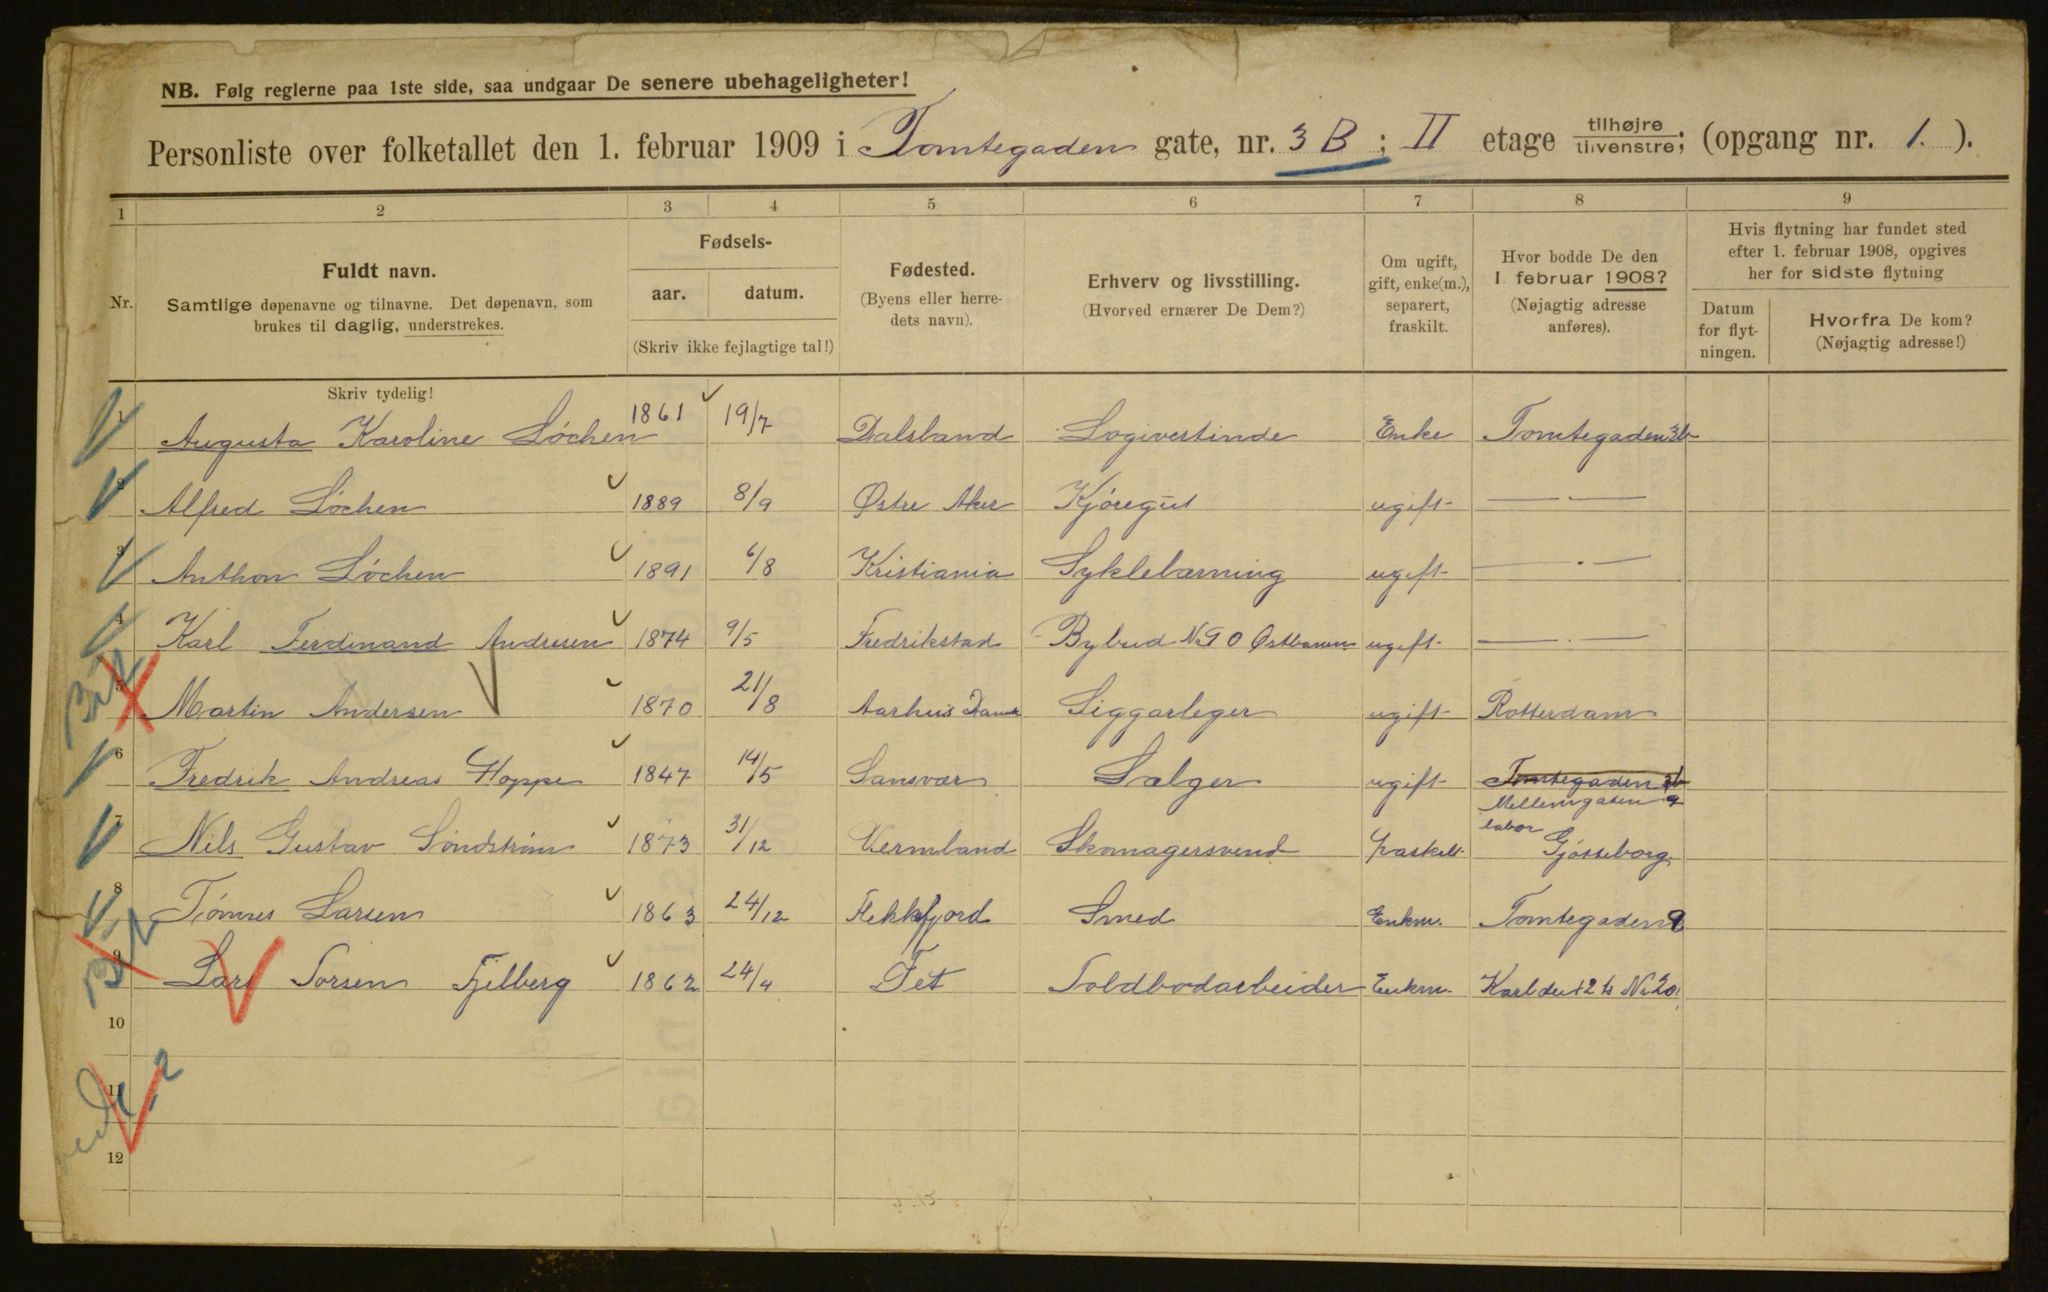 NB. Følg reglerne paa 1ste side, saa undgaar De senere ubehageligheter!
Personliste over folketallet den 1. februar 1909 i Tomtegaden gate, nr. 3 B; II etage tilhøjre tilvenstre; (opgang nr. 1.).
1 2 3 4 5 6 7 8 9
Nr.
Fuldt navn.
Samtlige døpenavne og tilnavne. Det døpenavn, som
brukes til daglig, understrekes.
Fødsels-
aar. datum.
(Skriv ikke fejlagtige tal!)
Fødested.
(Byens eller herre-
dets navn).
Erhverv og livsstilling.
(Hvorved ernærer De Dem?)
Om ugift,
gift, enke(m.),
separert,
fraskilt.
Hvor bodde De den
1. februar 1908?
(Nøjagtig adresse
anføres).
Hvis flytning har fundet sted
efter 1. februar 1908, opgives
her for sidste flytning
Datum
for flyt-
ningen.
Hvorfra De kom?
(Nøjagtig adresse!)
Skriv tydelig!
1 Augusta Karoline Løchen 1861 19/7 Dalsland Logivertinde Enke Tomtegaden 3b
2 Alfred Løchen 1889 8/9 Østre Aker Kjøregut ugift — " —
3 Anthon Løchen 1891 6/8 Kristiania Syklebærning ugift — " —
4 Karl Ferdinand Andresen 1874 9/5 Fredrikstad Bybud Nr 90 Østbanen ugift — " —
5 Martin Andersen 1870 21/8 Aarhus Danm Siggarleger ugift Rotterdam
6 Fredrik Andreas Hoppe 1847 14/5 Sansvær Sælger ugift Tomtegaden 3b
Mellemgaten 9
7 Nils Gustav Søndstrøm 1873 31/12 Vermland Skomagersvend fraskelt Gjøtteborg.
8 Tønnes Larsen 1863 24/12 Flekkefjord Smed Enkm. Tomtegaden 9
9 Lars Torsen Fjelberg 1862 24/4 Fet Toldbodarbeider Enkm. Karl den 12ts Nr 20
10
11
12